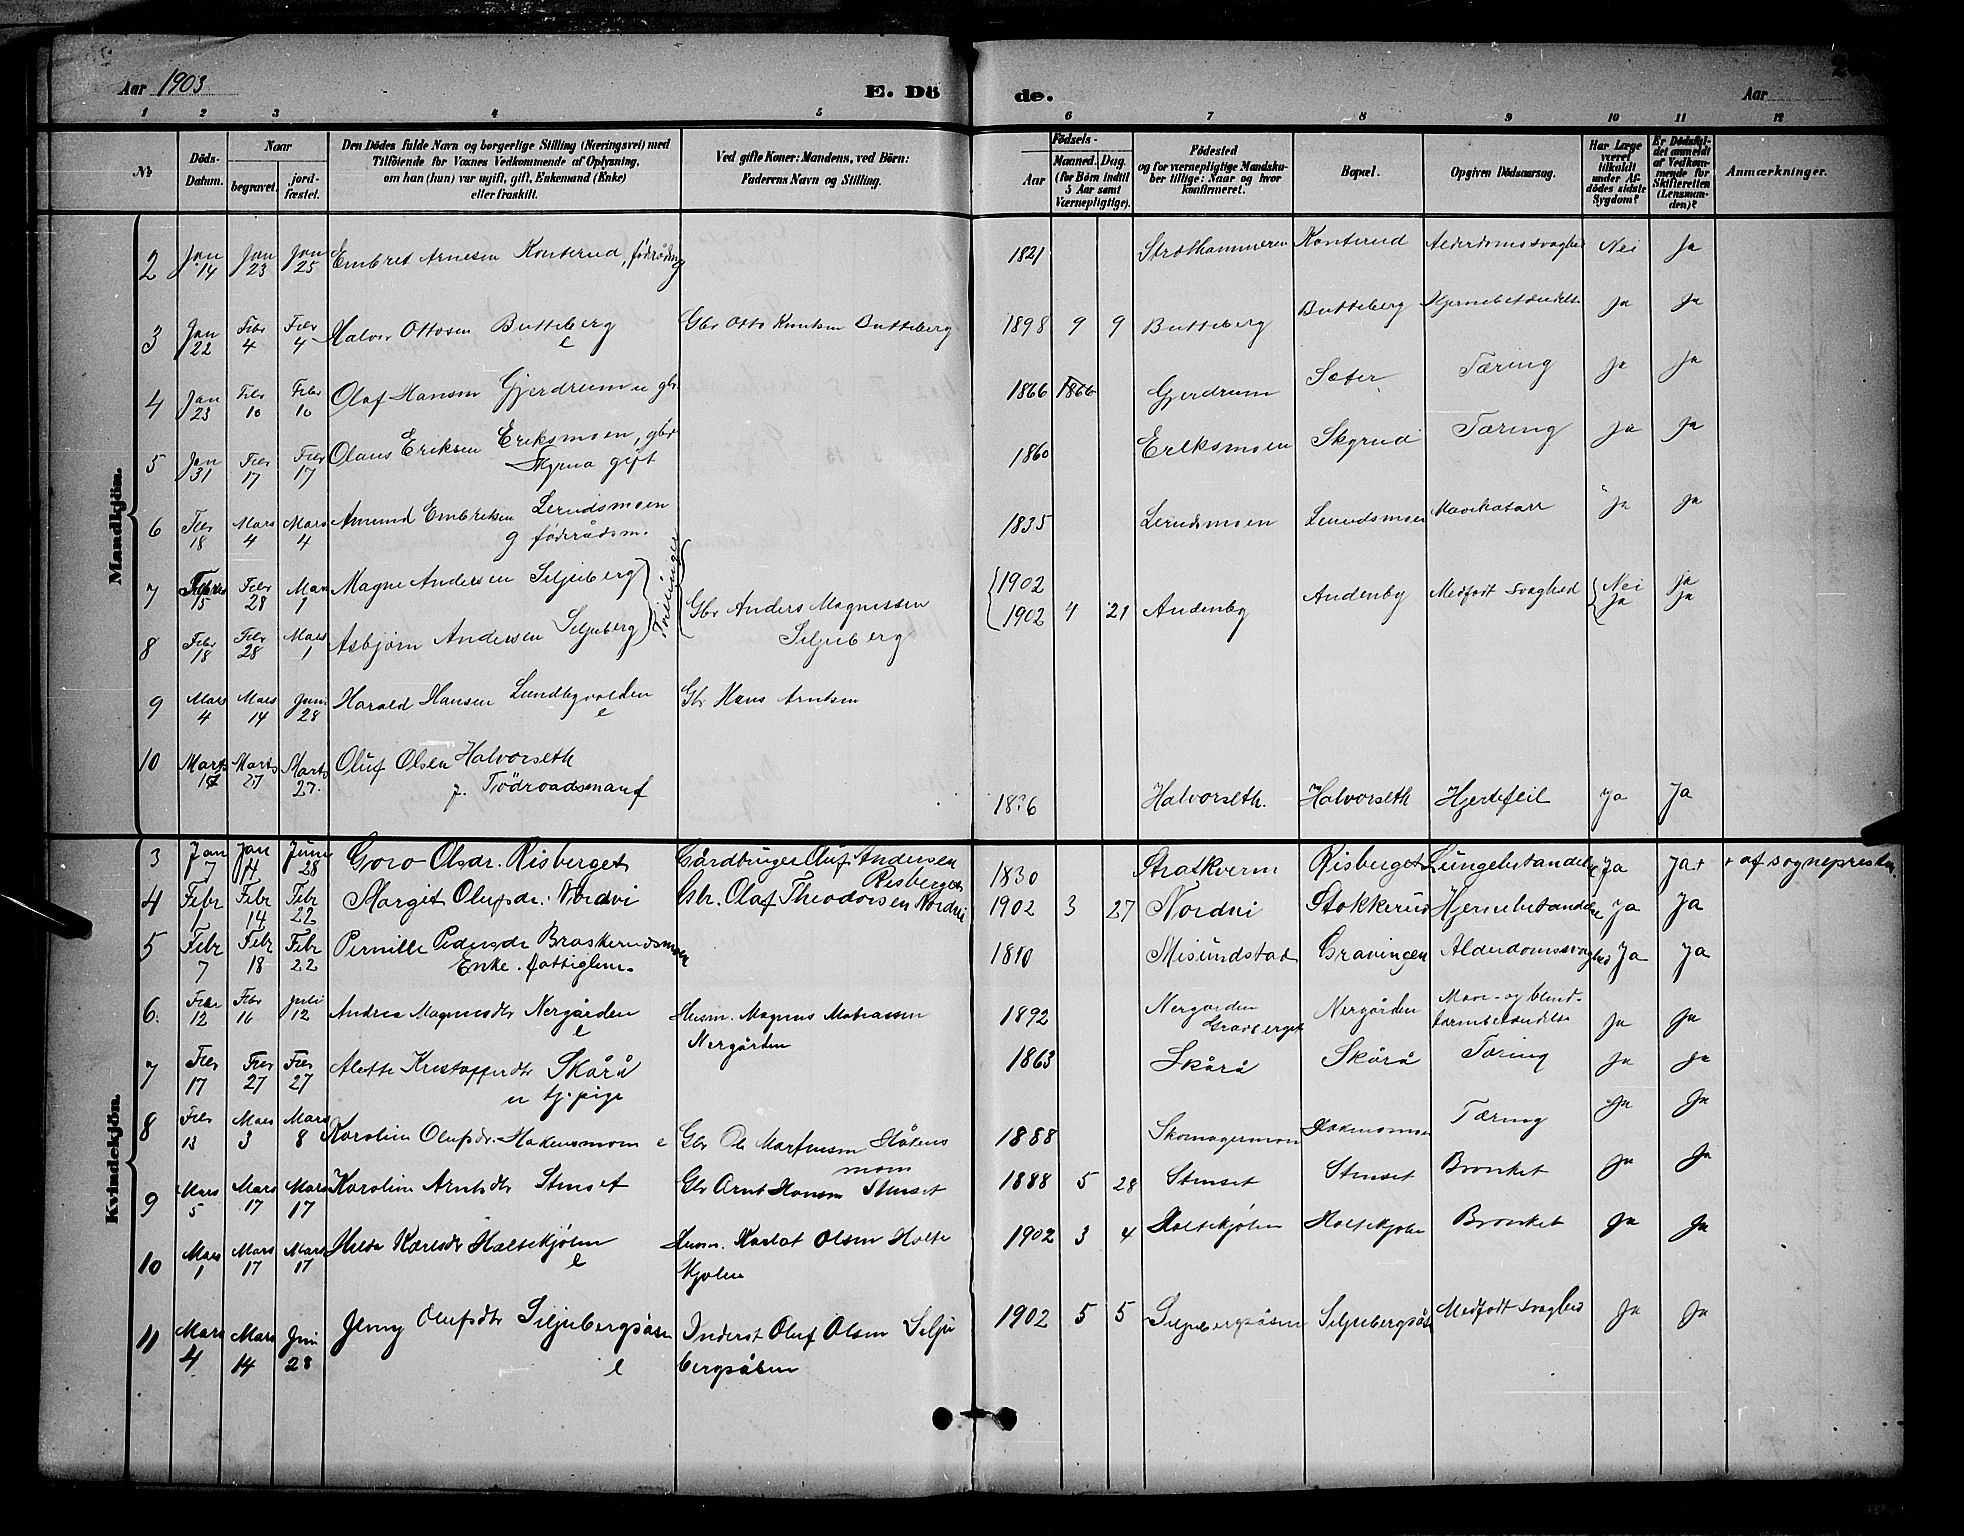 Aar 1903 E. Dö de. Aar
1 2 3 4 5 6 7 8 9 10 11 12
No
Döds-Datum.
Naar
begravet.
jordfæstet.
Den Dödes fulde Navn og borgerlige Stilling (Næringsvei) med
Tilföiende for Voxnes Vedkommende af Oplysning,
om han (hun) var ugift, gift, Enkemand (Enke)
eller fraskilt.
Ved gifte Koner: Mandens, ved Börn:
Faderens Navn og Stilling.
Födsels-
Aar
Maaned. Dag.
(for Börn indtil
5 Aar samt
Værnepligtige).
Födested
og for værnepligtige Mandskaber tillige: Naar og hvor
konfirmeret.
Bopæl.
Opgiven Dödsaarsag.
Har Læge
været
tilkaldt
under Afdödes sidste
Sygdom?
Er Dödsfaldet anmeldt
af Vedkommende for
Skifteretten
(Lensmanden)?
Anmærkninger.
Mandkjön.
2 Jan 14 Jan 23 Jan 25 Embret Arnesen Konterud, föderådsmg 1821 Strøthammeren Konterud Alderdomssvaghed Nei Ja
3 Jan 22 Febr 4 Febr 4 Halvor Ottosen Butteberg e Gbr Otto Knutsen Butteberg 1898 9 9 Butteberg Butteberg Hjernebetændelse Ja Ja
4 Jan 23 Febr 10 Febr 10 Olaf Hansen Gjerdrum u gbr 1866 1866 Gjerdrum Sæter Tæring Ja Ja
5 Jan 31 Febr 17 Febr 17 Olaus Eriksen Eriksmoen, gbr
Skyrud gift 1860 Eriksmoen Skyrud Tæring Ja Ja
6 Febr 18 Mars 4 Mars 4 Amund Embriksen Lerudsmoen
g föderådsm. 1835 Lerudsmoen Lerudsmoen Mavekatarr Ja Ja
7 Febr 15 Febr 28 Mars 1 Magne Andersen Siljuberg Tvillinger 1902 Nei ja
Gbr Anders Magnussen Siljuberg 1902 4 21 Andenby Andenby Medfødt Svaghed Ja ja
8 Febr 18 Febr 28 Mars 1 Asbjørn Andersen Siljuberg
9 Mars 4 Mars 14 Juni 28 Harald Hansen Lundbyvolden e Gbr Hans Arntsen
10 Marts Marts 27 Marts 27. Oluf Olsen Halvorseth
g. Födraadsmand Halvorseth. Halvorseth Hjertefeil Ja Ja
Kvindekjön.
3 Jan 7 Jan 14 Juni 28 Goro Olsdr. Risberget Gårdbruger Oluf Andersen
Risberget 1830 Stratkvern Risberget Lungebetændelse Ja Ja + + af sognepresten.
4 Febr 1 Febr 14 Febr 22 Margit Olufsdr. Nordvi Gbr. Olaf Theodorsen Nordvi 1902 3 27 Nordvi Stokkerud Hjernebetændelse Ja Ja
5 Febr 7 Febr 18 Febr 22 Pernille Pedersdr Braskerudsmoen
Enke. fattiglem. 1810 Misundstad Gravingen Alderdomssvaghed Ja Ja
6. Febr 12 Febr 16 Juli 12 Andrea Magnusdtr Nergården
e Husm. Magnus Matiassen
Nergården 1892 Nergarden
Gravberget Nergården Mave- og blind-
tarmbetændelse Ja Ja
7 Febr 17 Febr 27 Febr 27 Alette Kristofferdtr Skårå
u tj.pige 1863 Skårå Skårå Tæring Ja Ja
8 Febr 13 Mars 3 Mars 8 Karoline Olufsdr. Hakensmoen e Gbr Ole Martinsen Håkens
moen 1888 Skomagermoen Tæring Ja Ja
9 Mars 5 Mars 17 Mars 17 Karoline Arntsdtr Stenset Gbr Arnt Hansen Stenset 1888 5 28 Stenset Stenset Bronket Ja Ja
10 Mars 1 Mars 17 Mars 17 Hilda Karlsdr Holtekjølen
e Husm. Karlot Olsen Holte
kjolen 1902 3 4 Holtekjølen Holtekjolen Bronket Ja Ja
11 Mars 4 Mars 14 Juni 28 Jenny Olufsdtr Siljubergsåsen
e Inderst Oluf Olsen Silju
bergsåsen 1902 5 5 Siljubergsåsen Siljubergsåsen Medfødt Svaghed Ja Ja